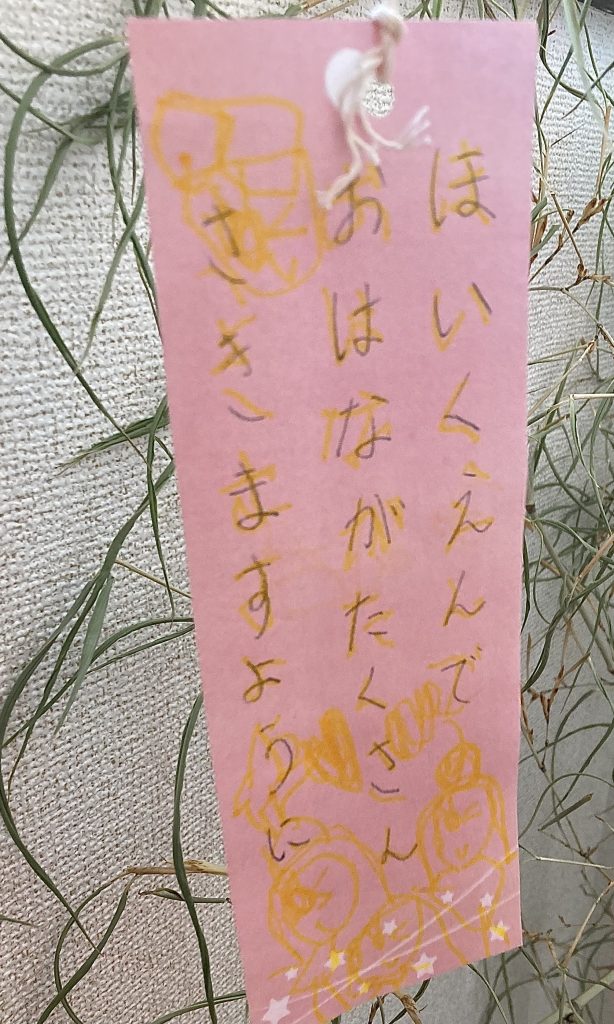 ほいくえんで
おはながたくさん
さきますように